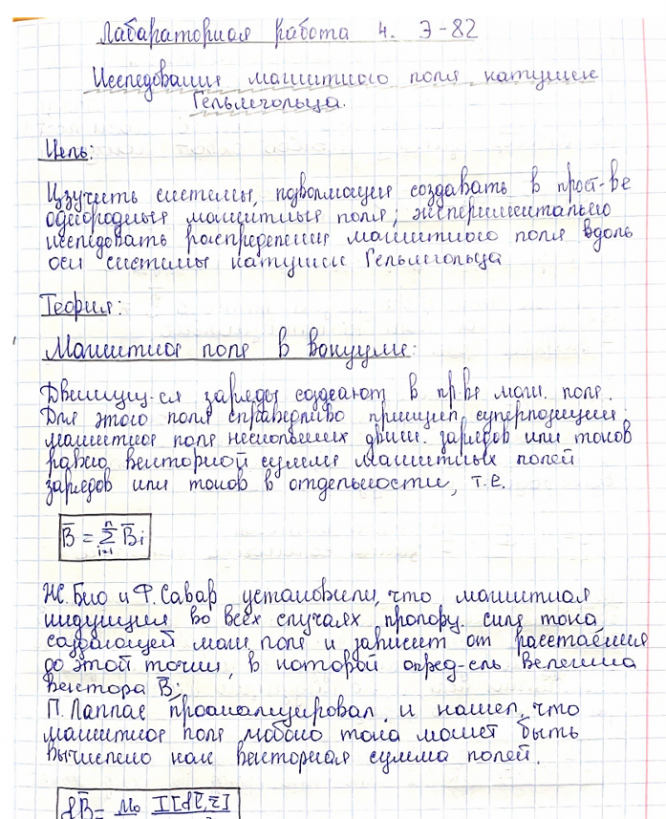 Лабораторная работа 4. Э-82
Исследование магнитного поля катушек
Гельмгольца.
Цель:
Изучить системы, позволяющие создавать в прост-ве
однородные магнитные поля; экспериментально
исследовать распределение магнитного поля вдоль
оси системы катушек Гельмгольца
Теория:
Магнитное поле в вакууме:
Движущ-ся заряды создают в пр.ве магн. поле.
Для этого поля справедливо принцип суперпозиции:
магнитное поле нескольких движ. зарядов или токов
равно векторной сумме магнитных полей
зарядов или токов в отдельности, т.е.
B̅ = n∑i=1 B̅i
Ж. Био и Ф. Савар установили, что магнитная
индукция во всех случаях пропорц. силе тока
создающей магн. поле и зависит от расстояния
до этой точки, в которой опред-сь величина
вектора B̅;
П. Лаплас проанализировал и нашел, что
магнитное поле любого тока может быть
вычислено как векторная сумма полей.
dB̅ = μ₀ I[dl̅,r̅]